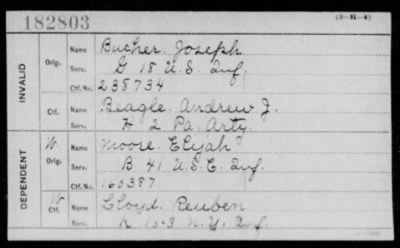 182803
(3-K-4)
INVALID
Orig.
Name Bucher, Joseph
Serv. G 18 U.S. Inf.
Ctf.No. 238734
Ctf.
Name Beagle, Andrew J.
Serv. H 2 Pa. Arty.
DEPENDENT
W
Orig.
Name Moore, Elijah
Serv. B 41 U.S.C. Inf.
Ctf. No. 160387
W
Ctf.
Name Cloyd, Reuben
Serv. 153 N.Y. Inf.